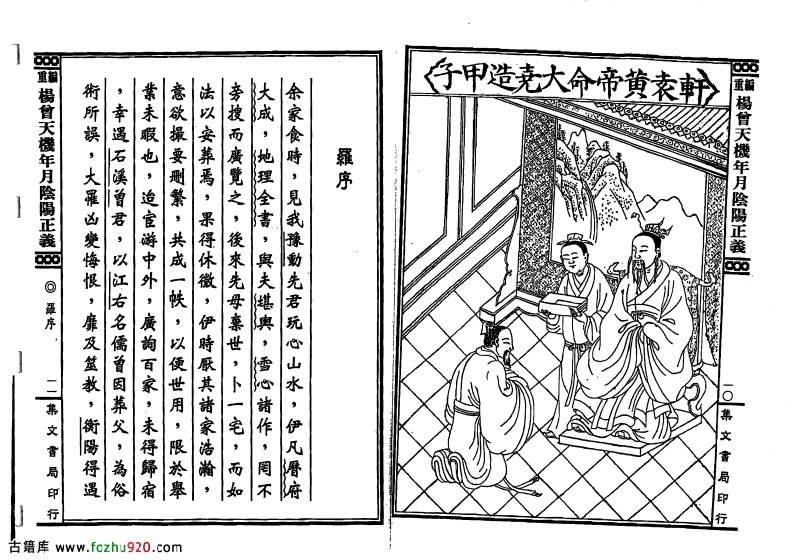 重編
楊曾天機年月陰陽正義
一〇
集文書局印行
軒袁黃帝命大堯造甲子
羅序
余家食時，見我豫動先君玩心山水，伊凡曆府
大成，地理全書，與夫堪輿，雪心諸作，罔不
旁搜而廣覽之，後來先母棄世，卜一宅，而如
法以安葬焉，果得休徵，伊時厭其諸家浩瀚，
意欲撮要刪繁，共成一帙，以便世用，限於舉
業未暇也，迨宦游中外，廣詢百家，未得歸宿
，幸遇石溪曾君，以江右名儒曾因葬父，為俗
術所誤，大罹凶變悔恨，靡及筮教，衡陽得遇
重編
楊曾天機年月陰陽正義
◎羅序
一一
集文書局印行
古籍库 www.fozhu920.com